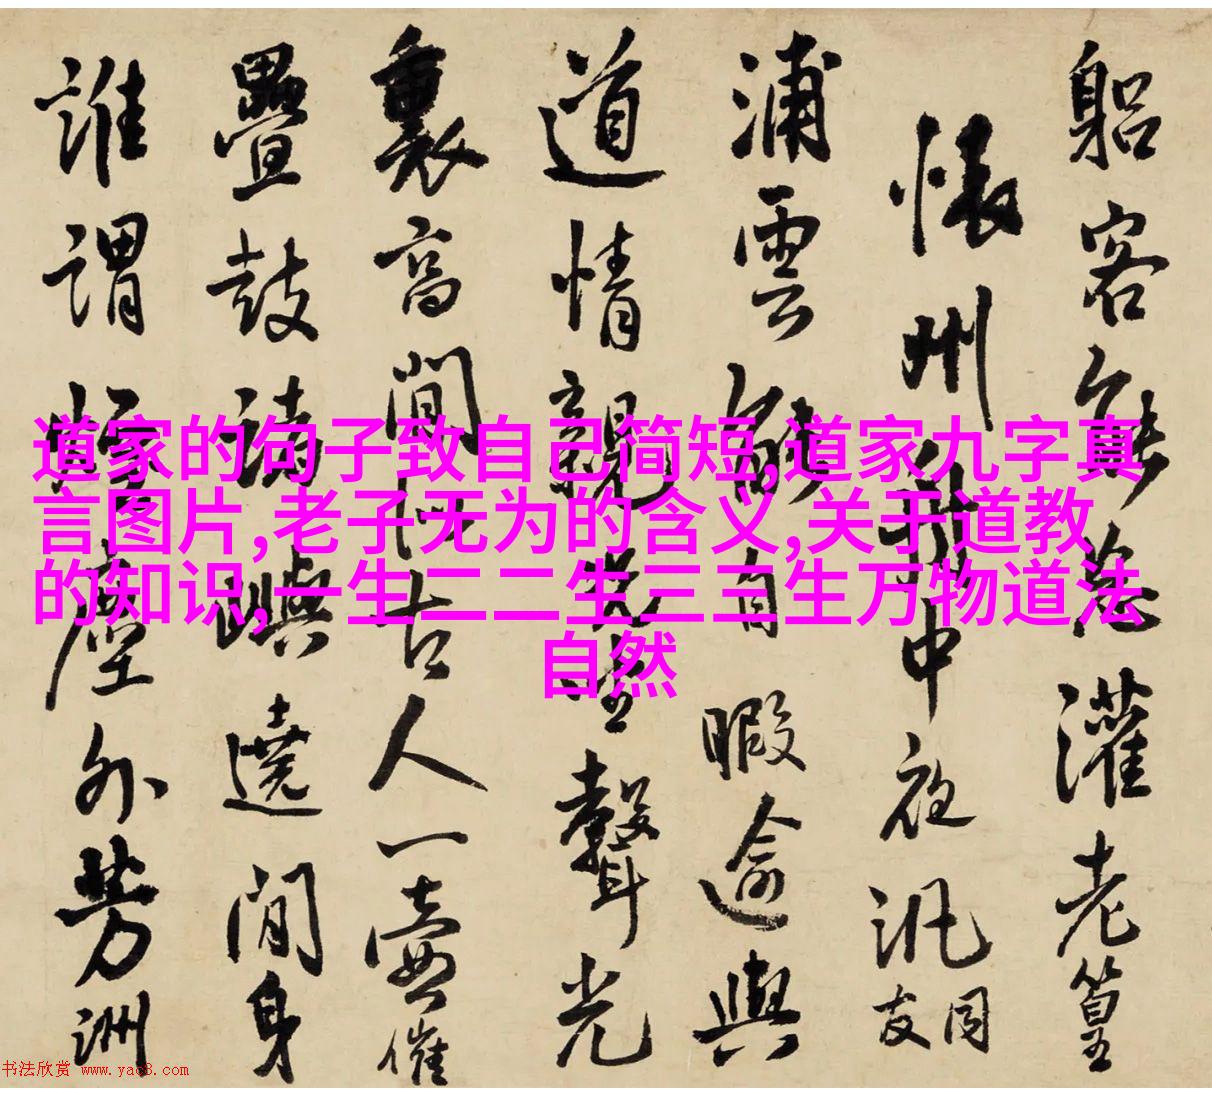 道家的句子致自己简短,道家九字真
言图片,老子无为的含义,关于道教
的知识,一生二二生三三生万物道法
自然
客能灌老篁
州中夜汎同友
浦雲自暇逾與
道情親聲光
裏高閒古人一壺催
疊鼓諸嶼遶閒身
誰謂塵外芳洲
书法欣赏 www.yac8.com